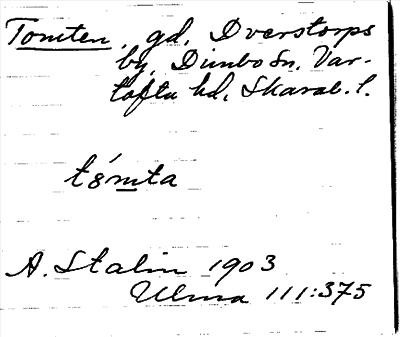 Tomten, gd, Dverstorps
by, Dimbo sn, Var-
tofta hd, Skarab. l.
A. Stalin 1903
Ulma 111:375